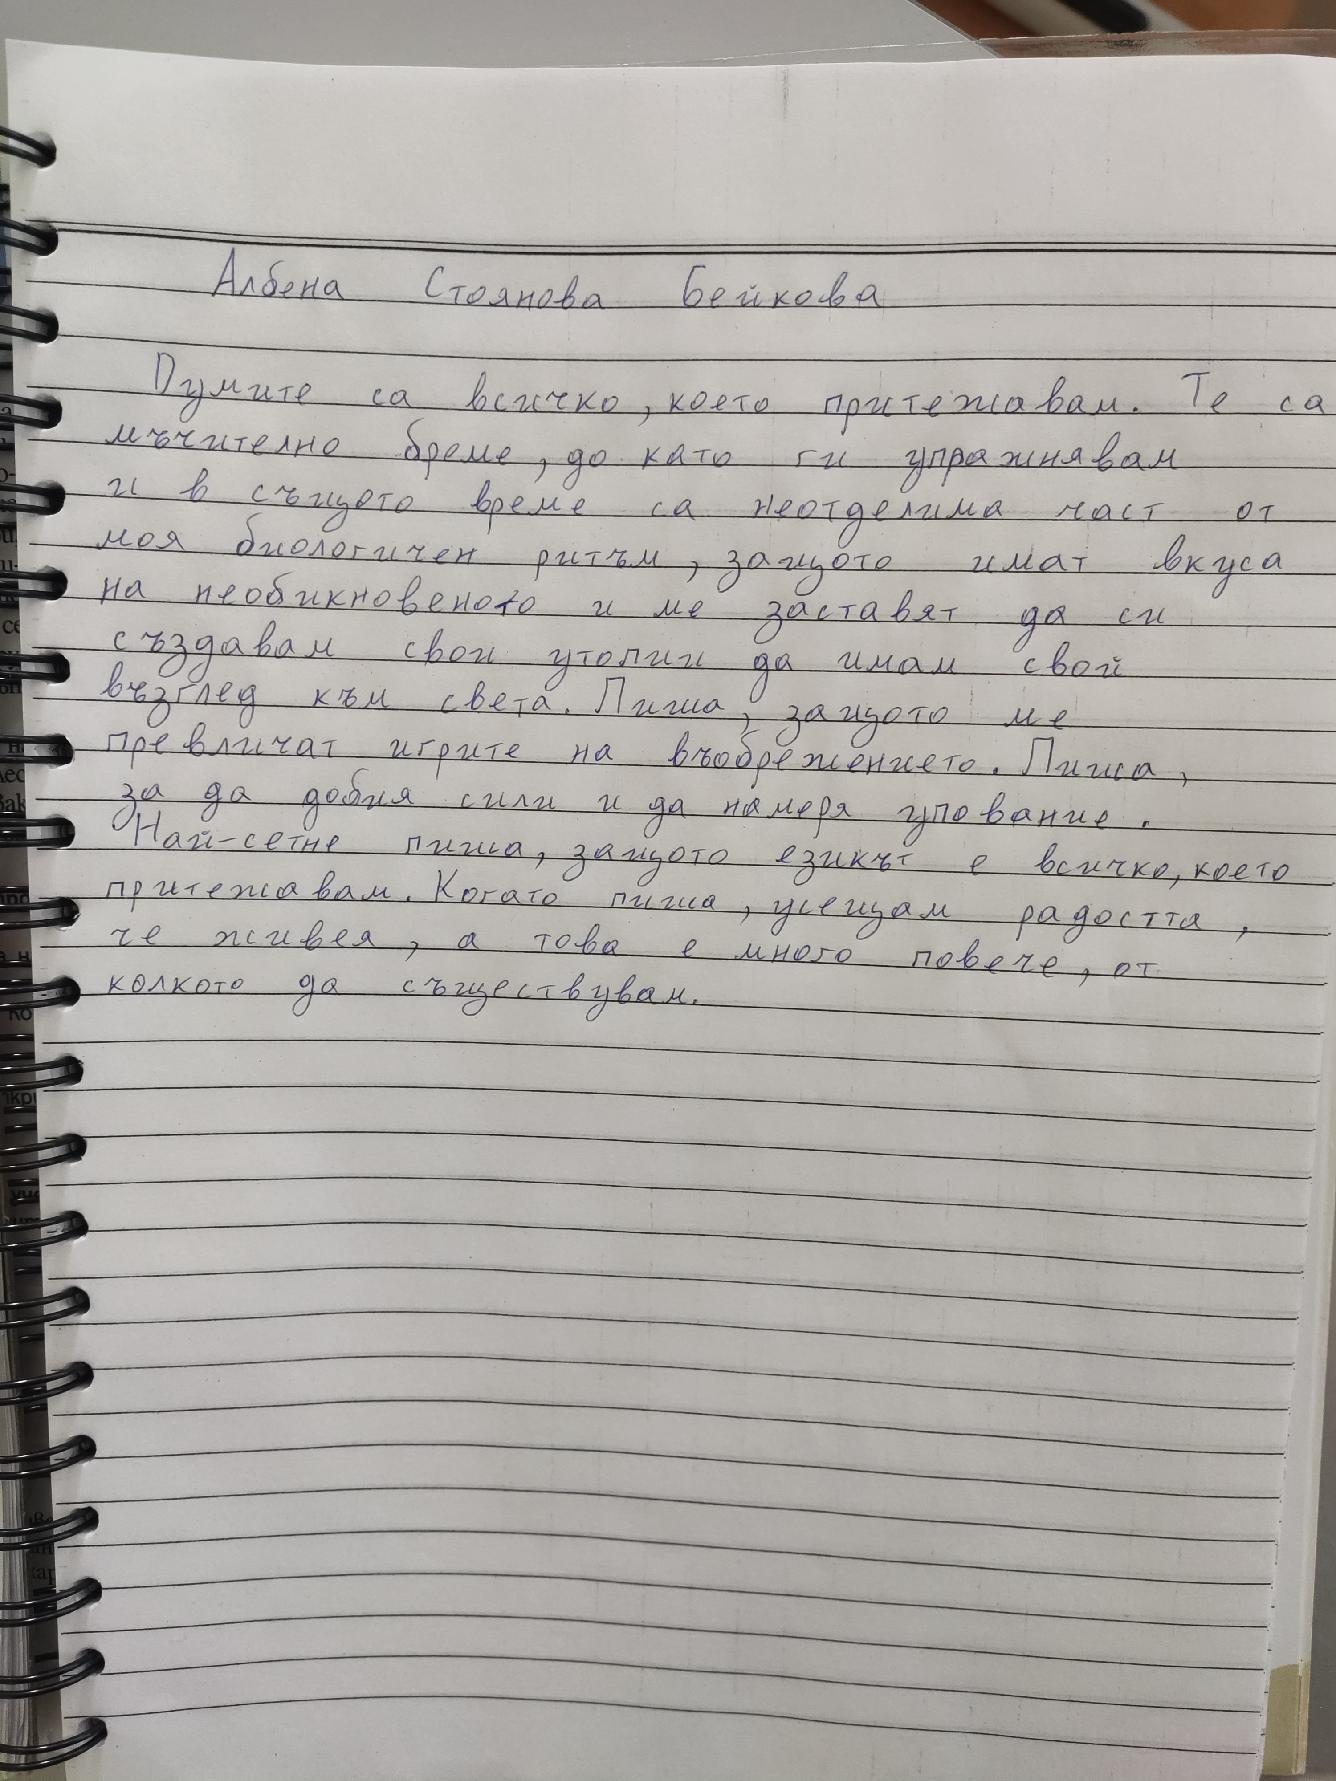 Албена Стоянова Бейкова
Думите са всичко, което притежавам. Те са
мъчително бреме, до като ги упражнявам
и в същото време са неотделима част от
моя биологичен ритъм, защото имат вкуса
на необикновеното и ме заставят да си
създавам свои утопии да имам свой
възглед към света. Пиша, защото ме
превличат игрите на въображението. Пиша,
за да добия сили и да намеря упование.
Най-сетне пиша, защото езикът е всичко, което
притежавам. Когато пиша, усещам радостта,
че живея, а това е много повече, от
колкото да съществувам.